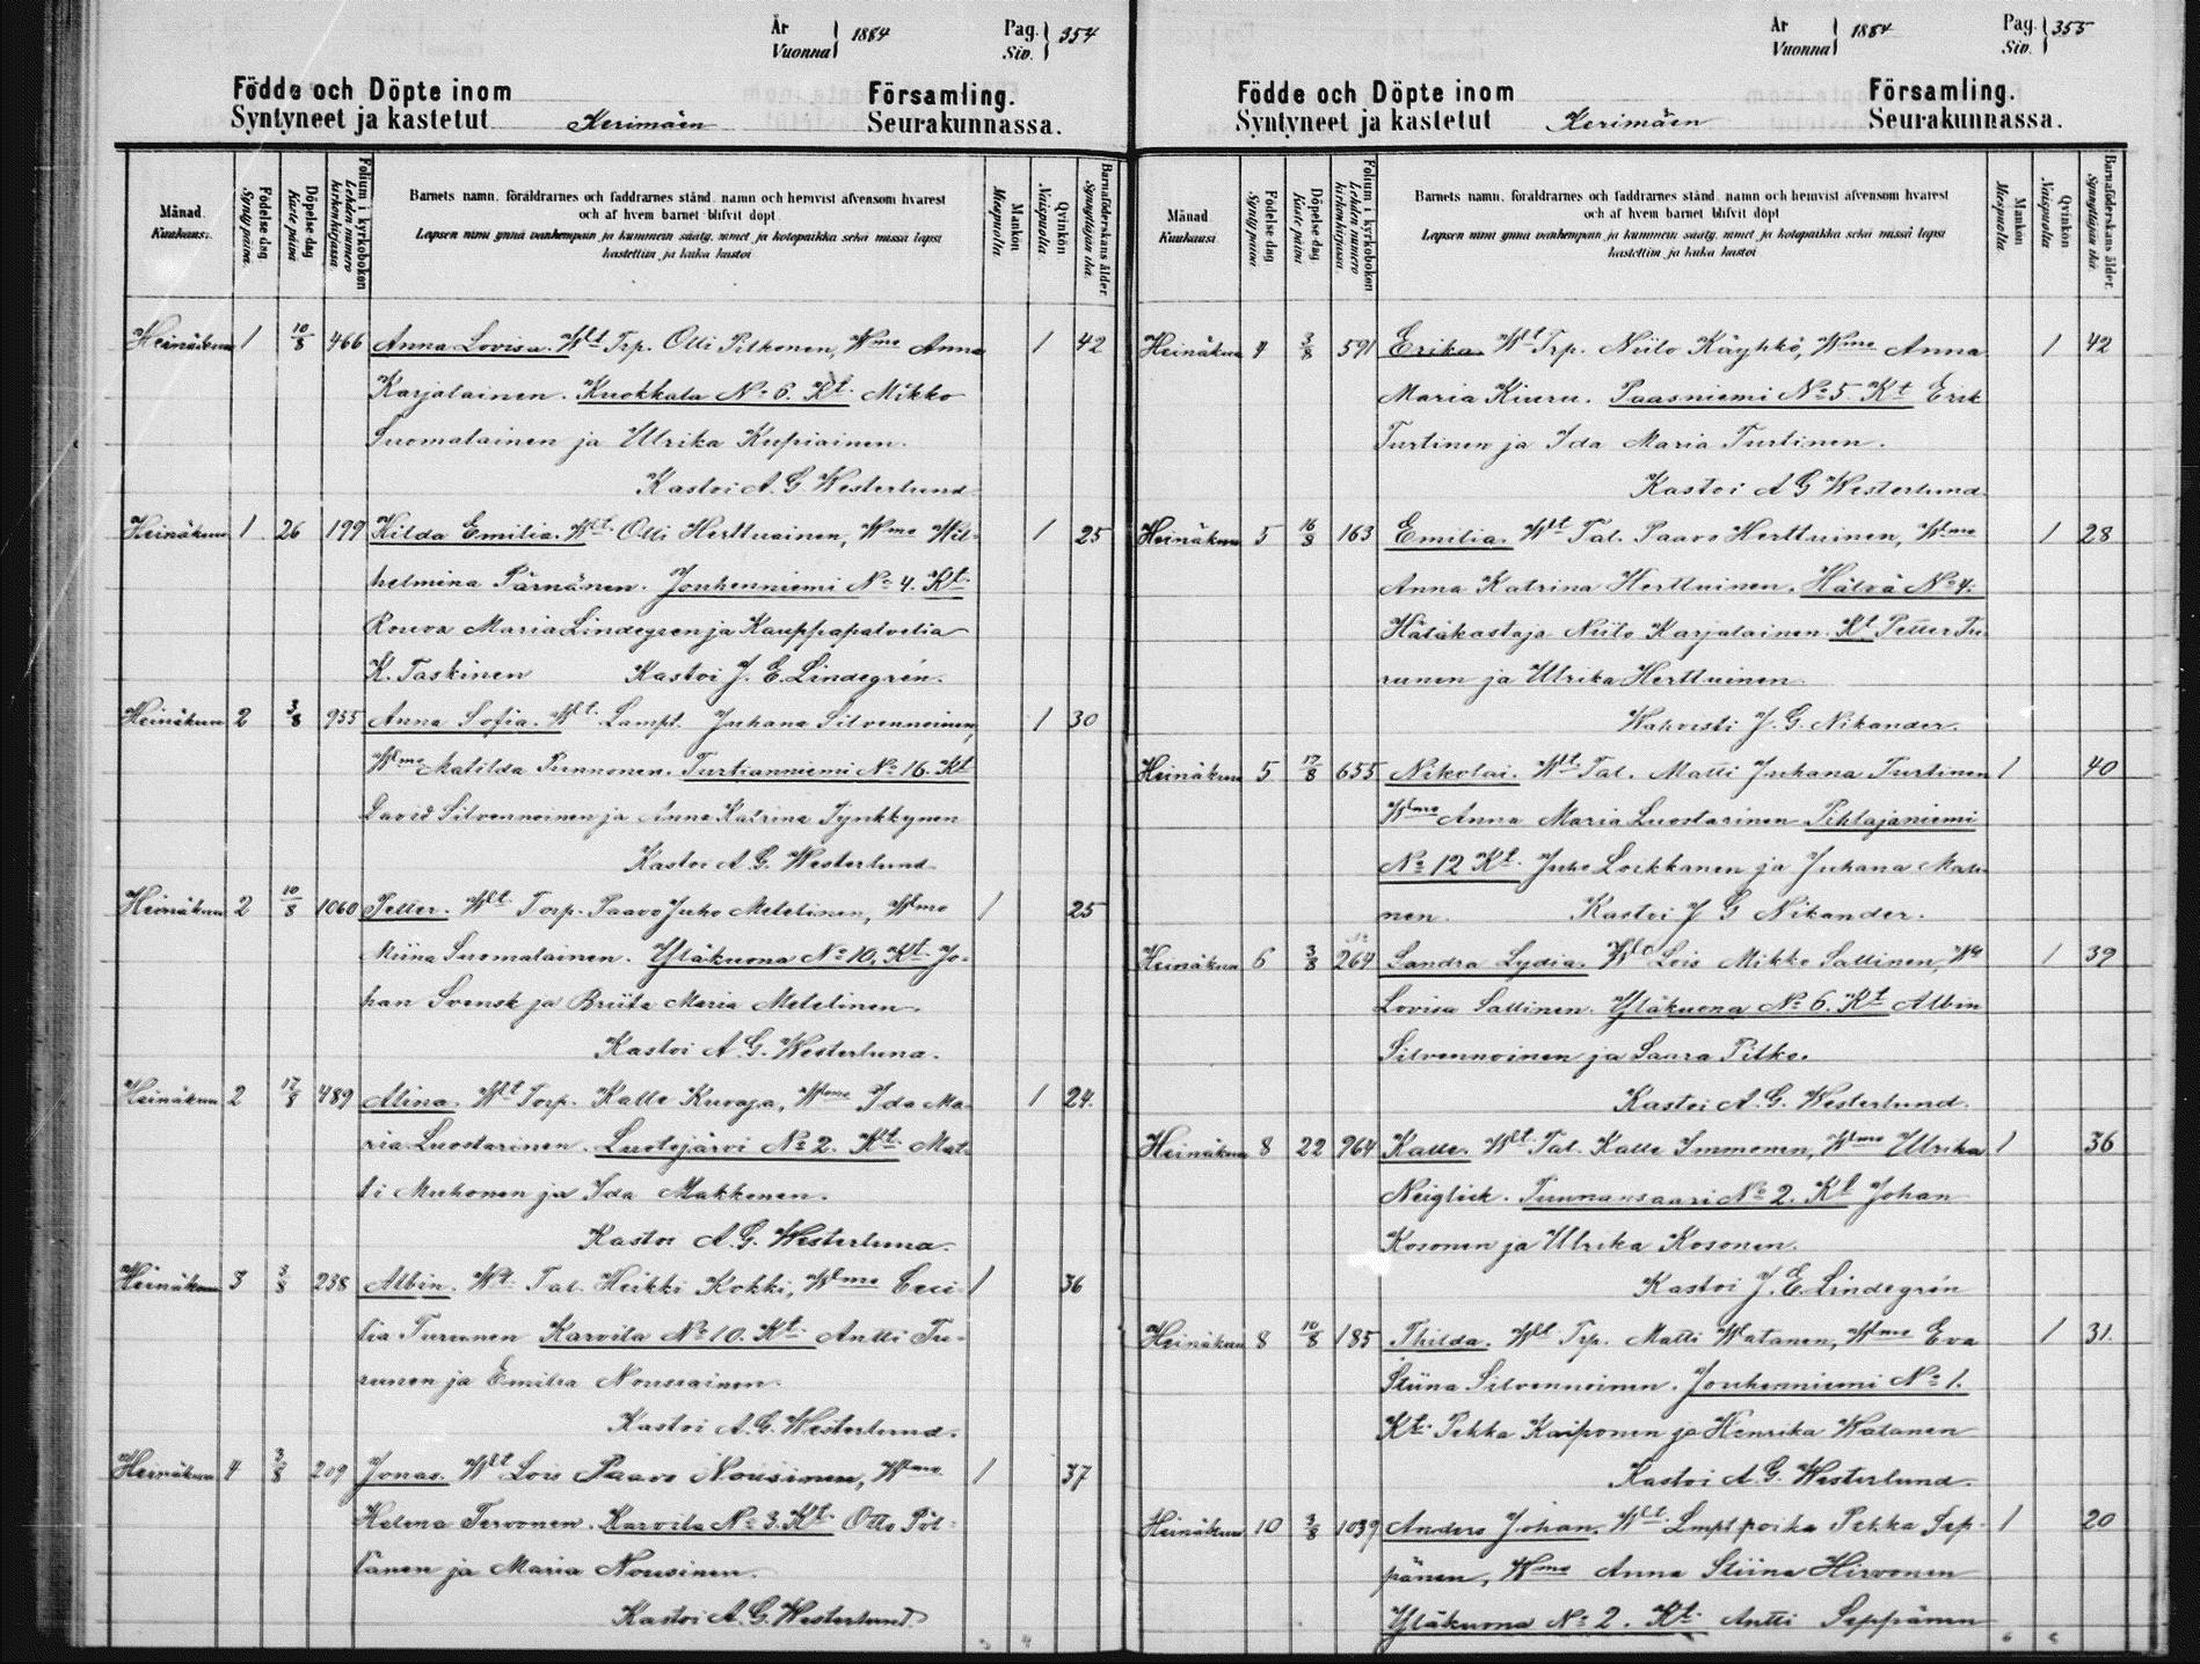 År
Vuonna } 1884
Pag.
Siv. } 354
Födde och Döpte inom Församling.
Syntyneet ja kastetut Kerimäen Seurakunnassa.
Månad.
Kuukausi.
Födelse-dag
Synty päivä.
Döpelse-dag
Kaste päivä
Folium i kyrkoboken
Lehden numero kirkonkirjassa
Barnets namn, föräldrarnes och faddrarnes stånd, namn och hemvist äfvensom hvarest
och af hvem barnet blifvit döpt.
Lapsen nimi ynnä vanhempain ja kummein sääty, nimet ja kotopaikka sekä missä lapsi
kastettiin ja kuka kastoi
Mankön
Miespuolia
Qvinkön
Naispuolia
Barnaföderskans ålder
Synnyttäjän ikä.
Heinäkuu 1 10/8 466 Anna Lovisa. Wht Trp. Olli Pitkonen, Wmo Anna 1 42
Karjalainen. Kuokkala No 6. Kt. Mikko
Suomalainen ja Ulrika Kupiainen.
Kastoi A. G. Westerlund
Heinäkuu 1 26 199 Hilda Emilia. Wht Olli Herttuainen, Wmo Wil- 1 25
helmina Pärnänen. Jouhenniemi No 4. Kt.
Rouva Maria Lindegren ja Kauppapalvelia
K. Taskinen Kastoi J. E. Lindegrén.
Heinäkuu 2 3/8 955 Anna Sofia. Wht. Lampt. Juhana Silvennoinen, 1 30
Whmo Matilda Punnonen. Turtianniemi No 16. Kt
David Silvennoinen ja Anna Katrina Tynkkynen
Kastoi A. G. Westerlund
Heinäkuu 2 10/8 1060 Petter. Wht. Torp. Paavo Juho Metelinen, Whmo 1 25
Miina Suomalainen. Yläkuona No 10. Kt. Jo-
han Svensk ja Briita Maria Metelinen.
Kastoi A. G. Westerlund.
Heinäkuu 2 17/8 489 Alina. Wht Torp. Kalle Kuvaja, Whmo Ida Ma- 1 24.
ria Luostarinen. Luotojärvi No 2. Kt. Mat-
ti Muhonen ja Ida Makkonen.
Kastoi A. G. Westerlund.
Heinäkuu 3 3/8 238 Albin. Wht. Tal. Heikki Kokki, Whmo Ceci- 1 36
lia Turunen Karvila No 10. Kt. Antti Tu-
runen ja Emilia Nousiainen.
Kastoi A. G. Westerlund.
Heinäkuu 4 3/8 209 Jonas. Wht Lois Paavo Nousinen, Whmo. 1 37
Helena Tervonen. Karvila No 3. Kt. Otto Pöl-
länen ja Maria Nousinen.
Kastoi A. G. Westerlund
År
Vuonna } 1884
Pag.
Siv. } 355
Födde och Döpte inom Församling.
Syntyneet ja kastetut Kerimäen Seurakunnassa.
Månad
Kuukausi
Födelse-dag
Synty päivä
Döpelse-dag
Kaste päivä
Folium i kyrkoboken
Lehden numero kirkonkirjassa
Barnets namn, föräldrarnes och faddrarnes stånd, namn och hemvist äfvensom hvarest
och af hvem barnet blifvit döpt
Lapsen nimi ynnä vanhempain ja kummein sääty, nimet ja kotopaikka sekä missä lapsi
kastettiin ja kuka kastoi
Mankön
Miespuolia
Qvinkön
Naispuolia
Barnaföderskans ålder.
Synnyttäjän ikä
Heinäkuu 4 3/8 591 Erika. Wht Trp. Niilo Käyhkö, Whmo Anna 1 42
Maria Kiuru. Paasniemi No 5. Kt Erik
Turtinen ja Ida Maria Turtinen.
Kastoi A G Westerlund
Heinäkuu 5 16/8 163 Emilia. Wht Tal. Paavo Herttuinen, Whmo 1 28
Anna Katrina Herttuinen. Hälvä No 4.
Hätäkastaja Niilo Karjalainen. Kt Petter Tu-
runen ja Ulrika Herttuinen.
Wahvisti J. G. Nikander.
Heinäkuu 5 17/8 655 Nikolai. Wht. Tal. Matti Juhana Turtinen 1 40
Whmo Anna Maria Luostarinen Pihlajaniemi
No 12 Kt. Juho Loikkanen ja Juhana Mali-
nen. Kastoi J G Nikander.
Heinäkuu 6 3/8 264 Sandra Lydia. Wht Lois Mikko Sallinen, W 1 39
Lovisa Sallinen. Yläkuona No 6. Kt Albin
Silvennoinen ja Laura Pitko.
Kastoi A. G. Westerlund.
Heinäkuu 8 22 964 Kalle. Wht. Tal. Kalle Immonen, Whmo Ulrika 1 36
Neiglick. Punnansaari No 2. Kt Johan
Kosonen ja Ulrika Kosonen.
Kastoi J. E. Lindegrén
Heinäkuu 8 10/8 185 Thilda. Wht Trp. Matti Watanen, Whmo Eva 1 31.
Stiina Silvennoinen. Jouhenniemi No 1.
Kt. Pekka Kaiponen ja Henrika Watanen
Kastoi A. G. Westerlund.
Heinäkuu 10 3/8 1039 Anders Johan. Wht. Lmpt poika Pekka Sep- 1 20
pänen, Whmo Anna Stiina Hirvonen
Yläkuona No 2. Kt. Antti Seppänen